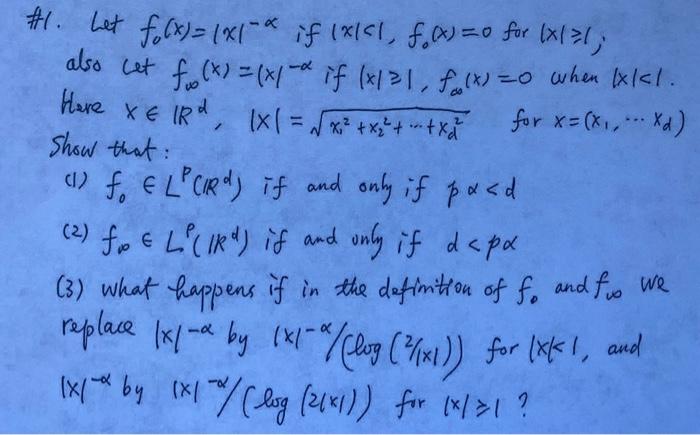 #1. Let f₀(x)=|x|^{-α} if |x|<1, f₀(x)=0 for |x|≥1;
also let f_∞(x)=|x|^{-α} if |x|≥1, f_∞(x)=0 when |x|<1.
Here x∈ℝ^d, |x|=√(x₁²+x₂²+⋯+x_d²) for x=(x₁,⋯x_d)
Show that:
(1) f₀ ∈ L^p(ℝ^d) if and only if pα<d
(2) f_∞ ∈ L^p(ℝ^d) if and only if d<pα
(3) what happens if in the definition of f₀ and f_∞ we
replace |x|^{-α} by |x|^{-α}/(log(2/|x|)) for |x|<1, and
|x|^{-α} by |x|^{-α}/(log(2|x|)) for |x|≥1?